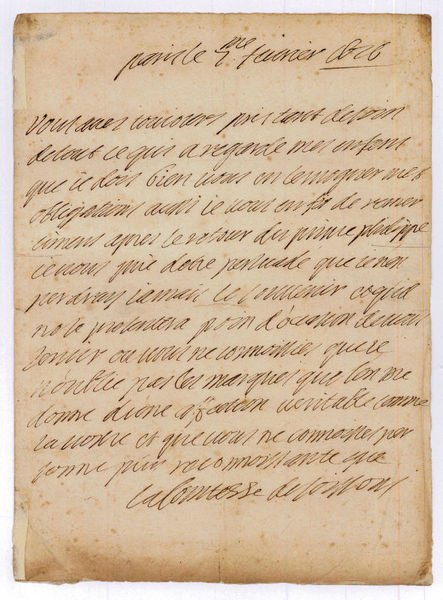 paris le me fevrier
vous aues tousiours pris tant de soin
de tout ce qui a regarde mes enfans
que ie dois bien vous en temoigner mes
obligations aussi ie vous en de remer
cimens apres le retour du prince philippe
ie vous prie detre persuade que ie nen
perdray iamais le souvenir quil
ne se presentera poin d'ocasion de vous
servir ou vous ne connoissies que ie
n'oublie pas les marques que l'on me
donne d'une affection veritable comme
la vostre et que vous ne connoistres per
sonne plus reconnoissante que
la Comtesse de soissons